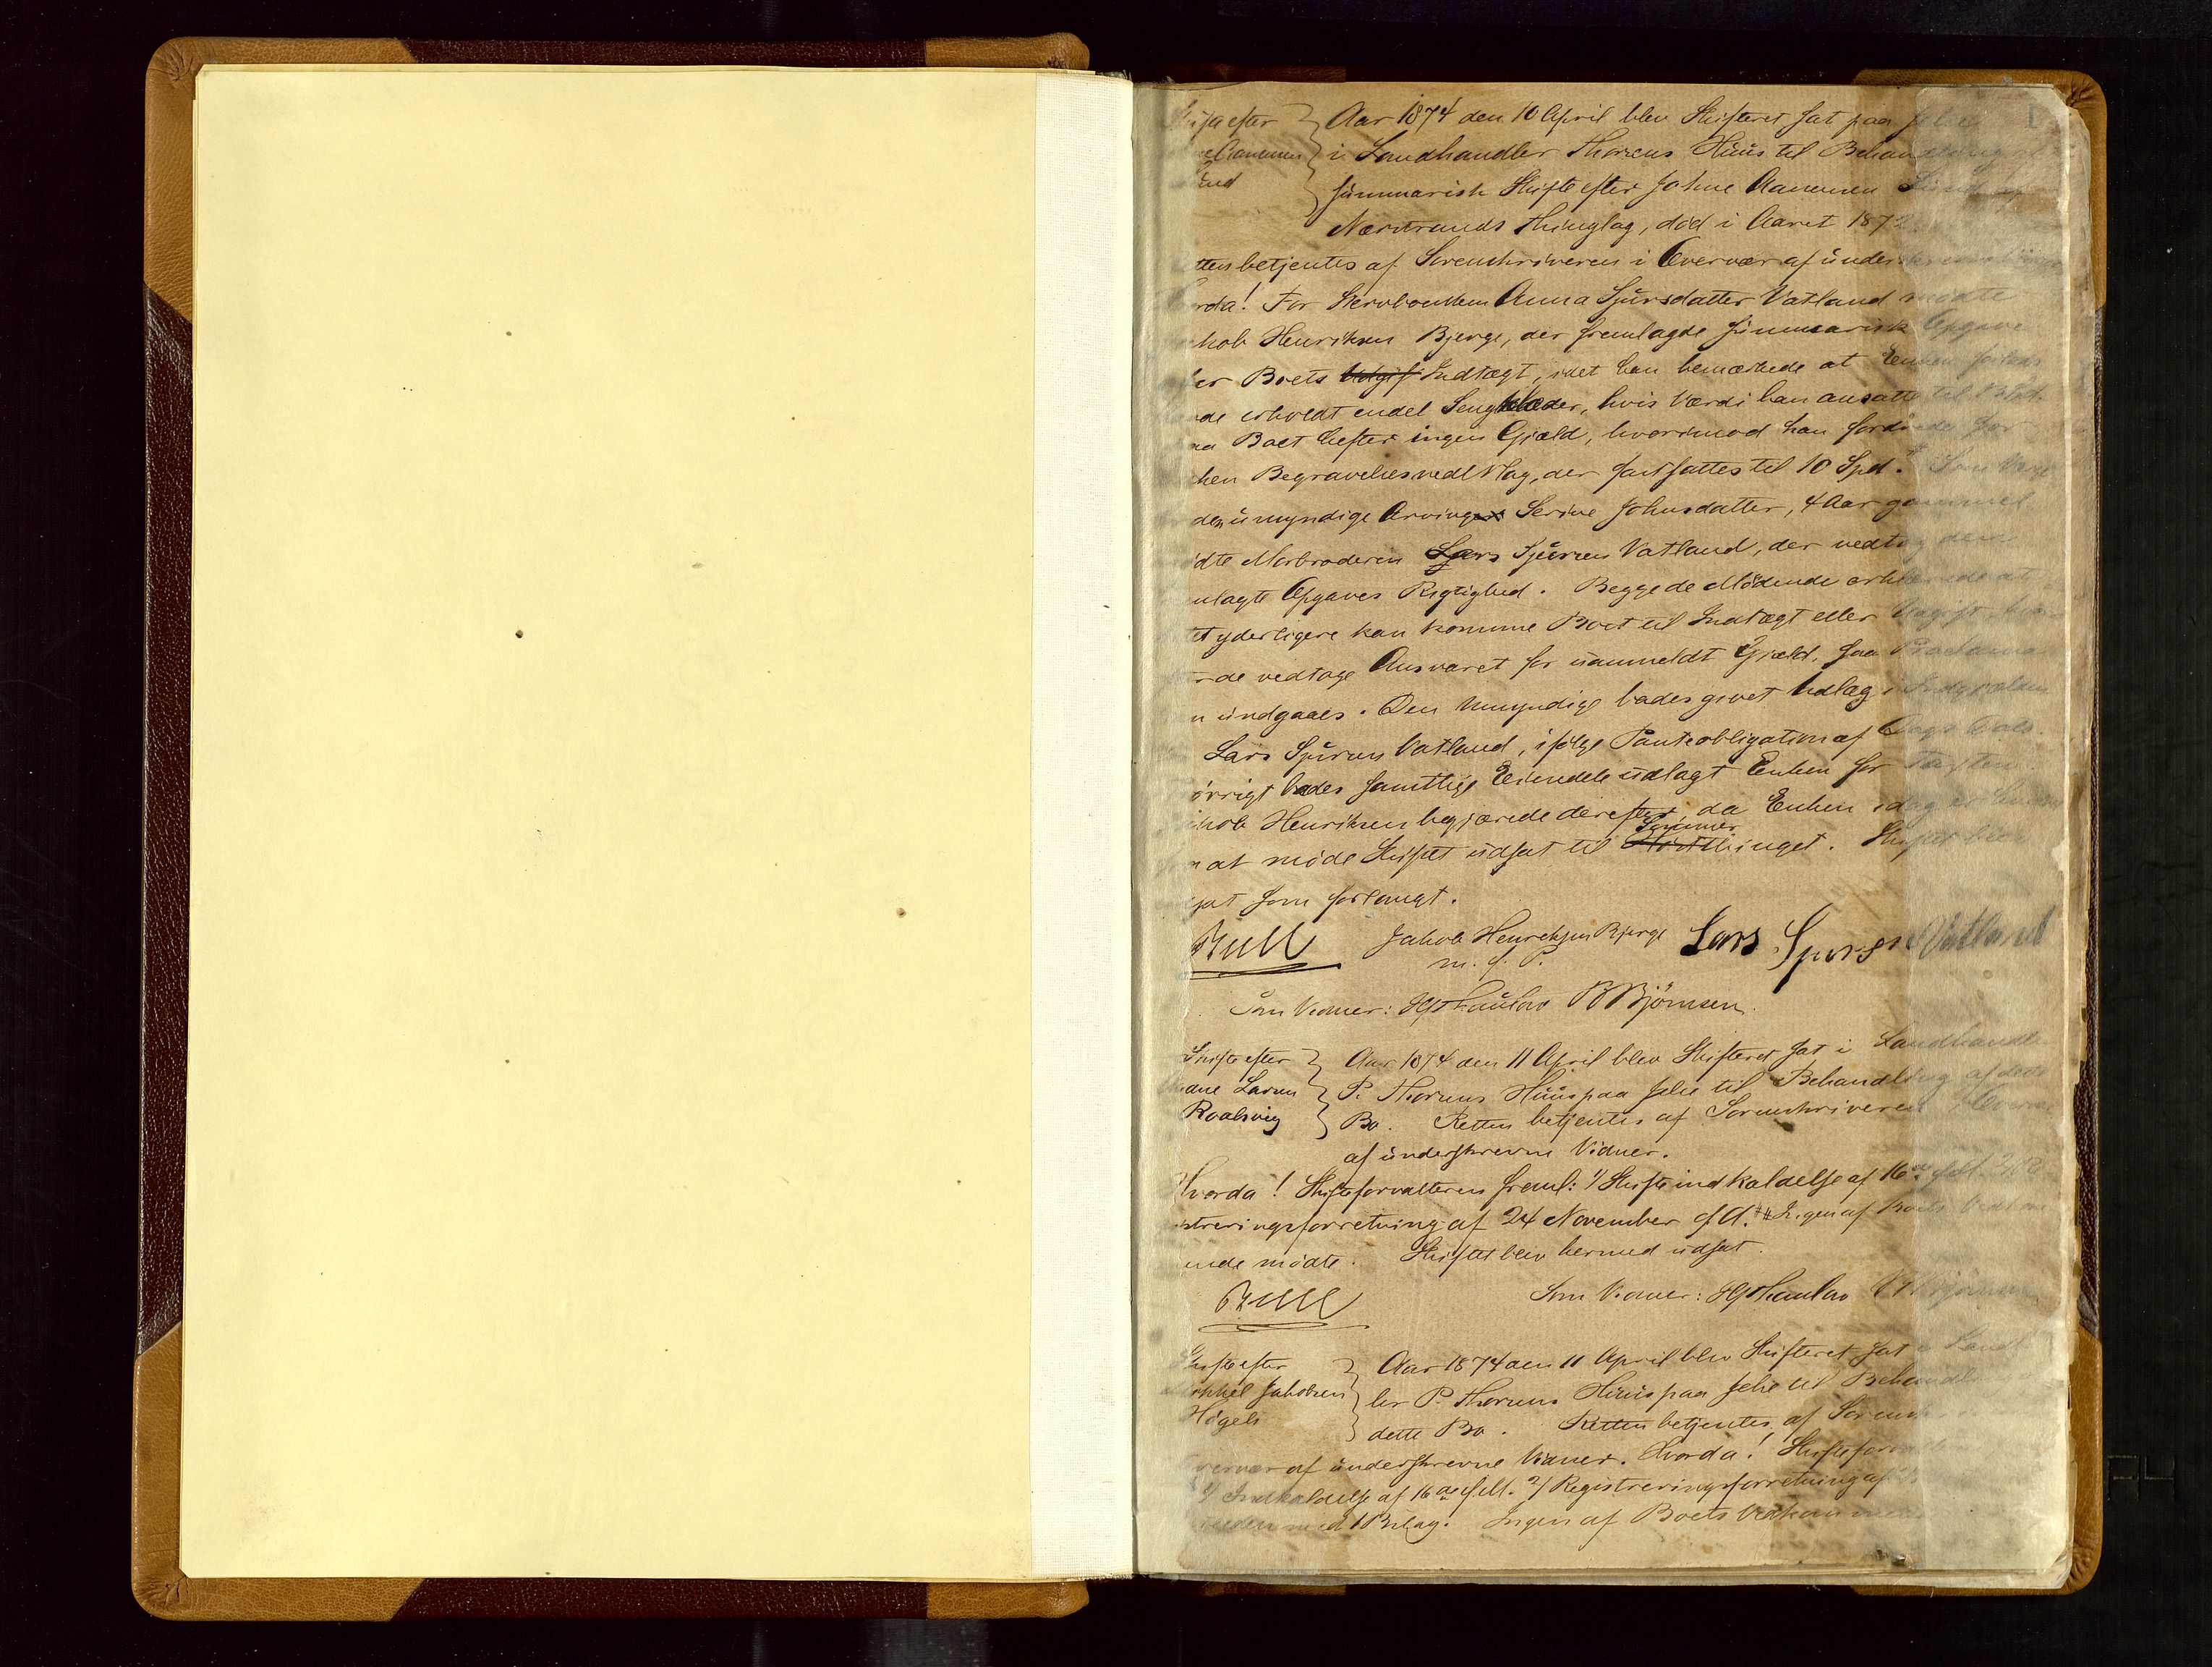 1
Skifte efter
Aanensen
Sund
Aar 1874 den 10 April blev Skifteret sat paa Jelse
i Landhandler Thorsens Huus til Behandling af
summarisk Skifte efter Johne Aanensen Sund af
Nærstrands Thinglag, død i Aaret 1872.
tten betjentes af Sorenskriveren i Overvær af underskrevne
rda! For Stervboenken Anna Sjursdatter Vatland mødte
kob Henriksen Bjerge, der fremlagde summarisk Opgave
er Boets Udgif Indtægt, idet han bemærkede at Enken
de erholdt endel Sengklæder, hvis Værdi han ansatte til
Boet hefter ingen Gjæld, hvorimod han fordrede for
ken Begravelsesvedlag, der fastsattes til 10 Spd. Som Værge
den umyndige Arving Serine Johnsdatter, 4 Aar gammel
dte Morbroderen Lars Sjursen Vatland, der vedtog den
mlagte Opgaves Rigtighed. Begge de Mødende erklærede at
et yderligere kan komme Boet til Indtægt eller Udgift,
de vedtage Ansvaret for uanmeldt Gjæld, saa Proclama
n undgaaes. Den Umyndige bades givet Udlæg i
Lars Sjursen Vatland, ifølge Panteobligation af Dags Dato.
øvrigt bades samtlige Eiendele udlagt Enken for Taxten.
kob Henriksen begjærede derefter, da Enken idag er
at møde Skiftet udsat til Høstthinget. Skiftet blev
Sommer
sat som forlangt.
Bull Jakob Henriksen Bjerge Lars Sjursen Vatland
m. f. P.
Som Vidner: B Bjørnsen.
Skifte efter
Larsen
Roalsvig
Aar 1874 den 11 April blev Skifteret sat i Landhandler
P. Thorsens Huus paa Jelse til Behandling af dette
Bo. Retten betjentes af Sorenskriveren i Overvær
af underskrevne Vidner.
Hvorda! Skifteforvalteren freml: 1) Skifteindkaldelse af 16de f. M. 2)
streringsforretning af 24 November f. A. Ingen af Boets
ende mødte. Skiftet blev hermed udsat.
Bull
Som Vidner:
Skifte efter
Mikkel Jakobsen
Høgeli
Aar 1874 den 11 April blev Skifteret sat i Land
ler P. Thorsens Huus paa Jelse til Behandl
dette Bo. Retten betjentes af Sorensk
Overvær af underskrevne Vidner. Hvorda! Skiftefor
1) Indkaldelse af 16de f. M. 2) Registreringsforretning af
med 1 Bilag. Ingen af Boets Vedkommende